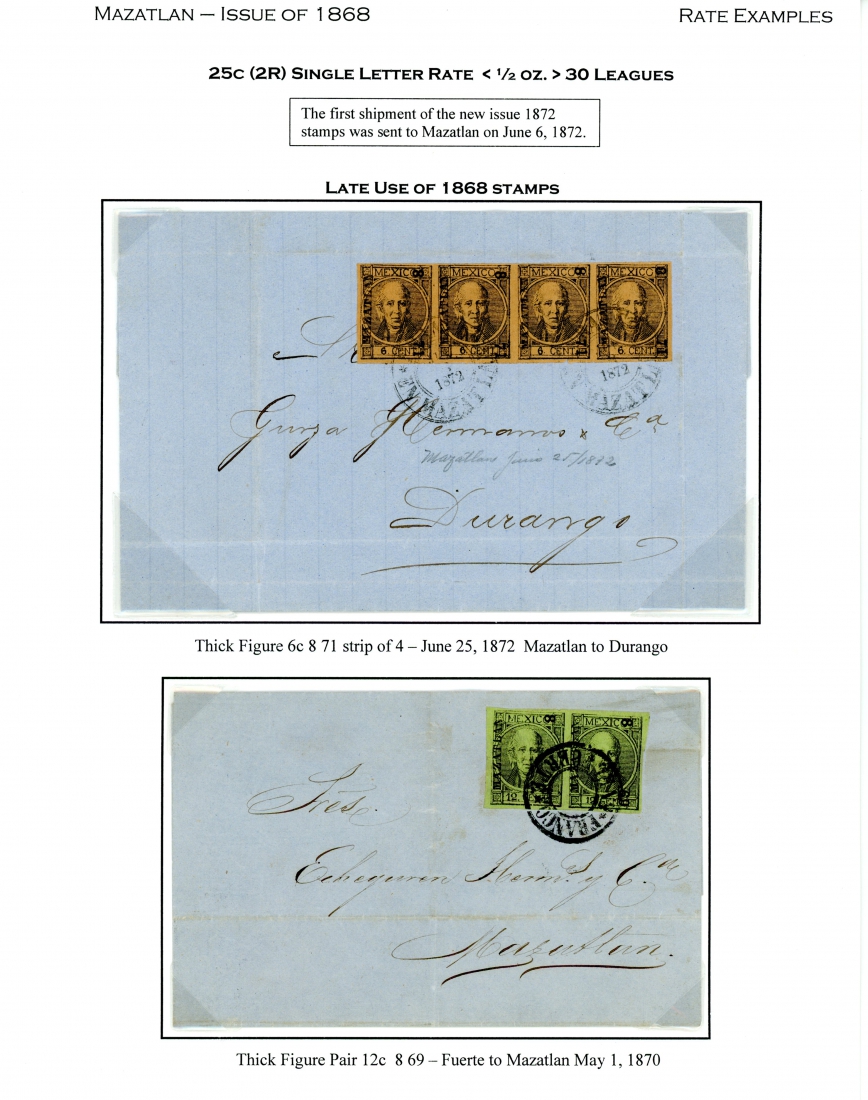 MAZATLAN – ISSUE OF 1868
RATE EXAMPLES
25C (2R) SINGLE LETTER RATE < ½ OZ. > 30 LEAGUES
The first shipment of the new issue 1872
stamps was sent to Mazatlan on June 6, 1872.
LATE USE OF 1868 STAMPS
MEXICO MEXICO MEXICO MEXICO
MAZATLAN MAZATLAN MAZATLAN MAZATLAN
8 8 8 8
71 71 71 71
6 CENT 6 CENT 6 CENT 6 CENT
1872 1872
EN MAZATL EN MAZATL
Gurza Hermanos & Ca
Mazatlan Junio 25/1872
Durango
Thick Figure 6c 8 71 strip of 4 – June 25, 1872 Mazatlan to Durango
MEXICO MEXICO
MAZATLAN MAZATLAN
8 8
12
FRANCO
Sres.
Echeguren Herms. y Ca
Mazatlan.
Thick Figure Pair 12c 8 69 – Fuerte to Mazatlan May 1, 1870